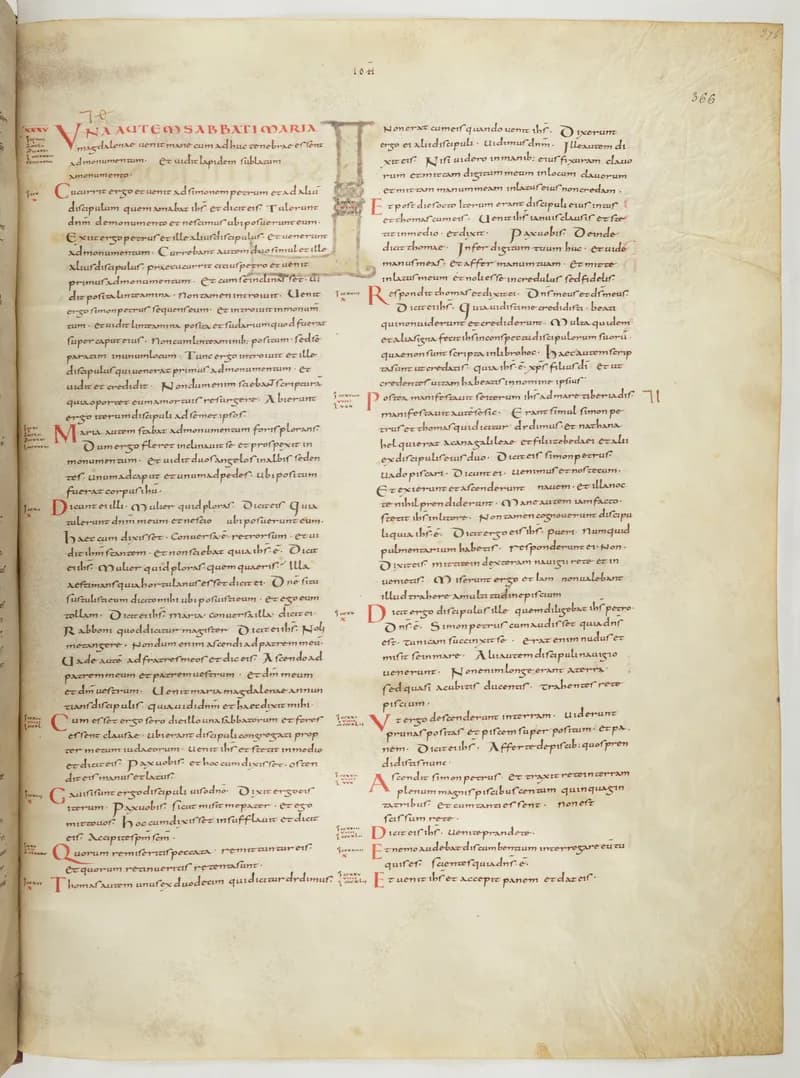 IOH
366
XXXV
UNA AUTEM SABBATI MARIA
magdalenae uenit mane cum adhuc tenebrae essent
ad monumentum · Et uidit lapidem sublatum
a monumento ·
Cucurrit ergo et uenit ad simonem petrum et ad aliū
discipulum quem amabat ihs̄ · et dicit eis · Tulerunt
dnm̄ de monumento et nescimus ubi posuerunt eum ·
Exiit ergo petrus et ille alius discipulus · Et uenerunt
ad monumentum · Currebant autem duo simul et ille
alius discipulus praecucurrit citius petro et uenit
primus ad monumentum · Et cum se inclinasset · ui
dit posita linteamina · non tamen introiuit · Uenit
ergo simon petrus sequens eum · Et introiuit in monum̄
tum · et uidit linteamina posita et sudarium quod fuerat
super caput eius · Non cum linteaminib; positum · sed se
paratim inuolutum in unum locum · Tunc ergo introiuit et ille
discipulus qui uenerat primus ad monumentum · Et
uidit et credidit · Nondum enim sciebant scriptura
quia oportet eum a mortuis resurgere · Abierunt
ergo iterum discipuli ad semet ipsos ·
Maria autem stabat ad monumentum foris plorans ·
Dum ergo fleret inclinauit se et prospexit in
monumentum · Et uidit duos angelos in albis seden
tes · unum ad caput et unum ad pedes · ubi positum
fuerat corpus ihu ·
Dicunt ei illi · Mulier quid ploras · Dicit eis · Quia
tulerunt dnm̄ meum et nescio ubi posuerunt eum ·
Haec cum dixisset · Conuersa ē retrorsum · et ui
dit ihm̄ stantem · et non sciebat quia ihs̄ ē · Dicit
ei ihs̄ · Mulier quid ploras · quem quaeris · Illa
aestimans quia hortulanus esset dicit ei · Dn̄e si tu
sustulisti eum dicito mihi ubi posuisti eum · Et ego eum
tollam · Dicit ei ihs̄ · maria · conuersa illa · dicit ei ·
Rabboni quod dicitur magister · Dicit ei ihs̄ · Noli
me tangere · Nondum enim ascendi ad patrem meū ·
Uade autē ad fratres meos et dic eis · Ascendo ad
patrem meum et patrem uestrum · et dm̄ meum
et dm̄ uestrum · Uenit maria magdalenae annun
tians discipulis · quia uidi dnm̄ et haec dixit mihi ·
Cum esset ergo sero die illo una sabbatorum et fores
essent clausae · ubi erant discipuli congregati prop
ter metum iudaeorum · uenit ihs̄ et stetit in medio
et dicit eis · Pax uobis · et hoc cum dixisset · osten
dit eis manus et latus ·
Gauisi sunt ergo discipuli uiso dn̄o · Dixit ergo eis
iterum · Pax uobis · sicut misit me pater · et ego
mitto uos · Hoc cum dixisset insufflauit et dicit
eis · Accipite spm̄ scm̄ ·
Quorum remiseritis peccata · remittuntur eis ·
Et quorum retinueritis retenta sunt ·
Thomas autem unus ex duodecim qui dicitur didimus ·
non erat cum eis quando uenit ihs̄ · Dixerunt
ergo ei alii discipuli · Uidimus dnm̄ · Ille autem di
xit eis · Nisi uidero in manib; eius fixuram clauo
rum et mittam digitum meum in locum clauorum
et mittam manum meam in latus eius non credam ·
Et post dies octo iterum erant discipuli eius intus
et thomas cum eis · Uenit ihs̄ ianuis clausis et ste
tit in medio · Et dixit · Pax uobis · Deinde
dicit thomae · Infer digitum tuum huc · Et uide
manus meas · Et affer manum tuam · Et mitte
in latus meum et noli esse incredulus sed fidelis ·
Respondit thomas et dixit ei · Dn̄s meus et ds̄ meus ·
Dicit ei ihs̄ · Quia uidisti me credidisti · beati
qui non uiderunt et crediderunt · Multa quidem
et alia signa fecit ihs̄ in conspectu discipulorum suorū ·
quae non sunt scripta in libro hoc · Haec autem scrip
ta sunt ut credatis quia ihs̄ ē xps̄ filius dī · Et ut
credentes uitam habeatis in nomine ipsius ·
Postea manifestauit se iterum ihs̄ ad mare tiberiadis ·
manifestauit autē se sic · Erant simul simon pe
trus et thomas qui dicitur didimus · et nathana
hel qui erat a cana galileae · et filii zebedaei et alii
ex discipulis eius duo · Dicit eis simon petrus ·
Uado piscari · Dicunt ei · uenimus et nos tecum ·
Et exierunt et ascenderunt nauem · et illa noc
te nihil prendiderunt · Mane autem iam facto ·
stetit ihs̄ in litore · Non tamen cognouerunt discipu
li quia ihs̄ ē · Dicit ergo eis ihs̄ · Pueri · Numquid
pulmentarium habetis · responderunt ei · Non ·
Dixit eis mittite in dexteram nauigii rete · et in
uenietis · Miserunt ergo et iam non ualebant
illud trahere a multitudine piscium
Dicit ergo discipulus ille quem diligebat ihs̄ petro ·
Dn̄s ē · Simon petrus cum audisset quia dn̄s
est · tunicam succinxit se · erat enim nudus et
misit se in mare · Alii autem discipuli nauigio
uenerunt · Non enim longe erant a terra ·
sed quasi a cubitis ducentis · trahentes rete
piscium ·
Ut ergo descenderunt in terram · Uiderunt
prunas positas et piscem super positum · et pa
nem · Dicit eis ihs̄ · Afferte de piscib; quos pren
didistis nunc ·
Ascendit simon petrus · et traxit rete in terram
plenum magnis piscibus centum quinquagin
ta tribus · Et cum tanti essent · non est
scissum rete ·
Dicit eis ihs̄ · Uenite prandete ·
Et nemo audebat discumbentium interrogare eū tu
quis es · scientes quia dn̄s ē ·
Et uenit ihs̄ et accepit panem et dat eis ·